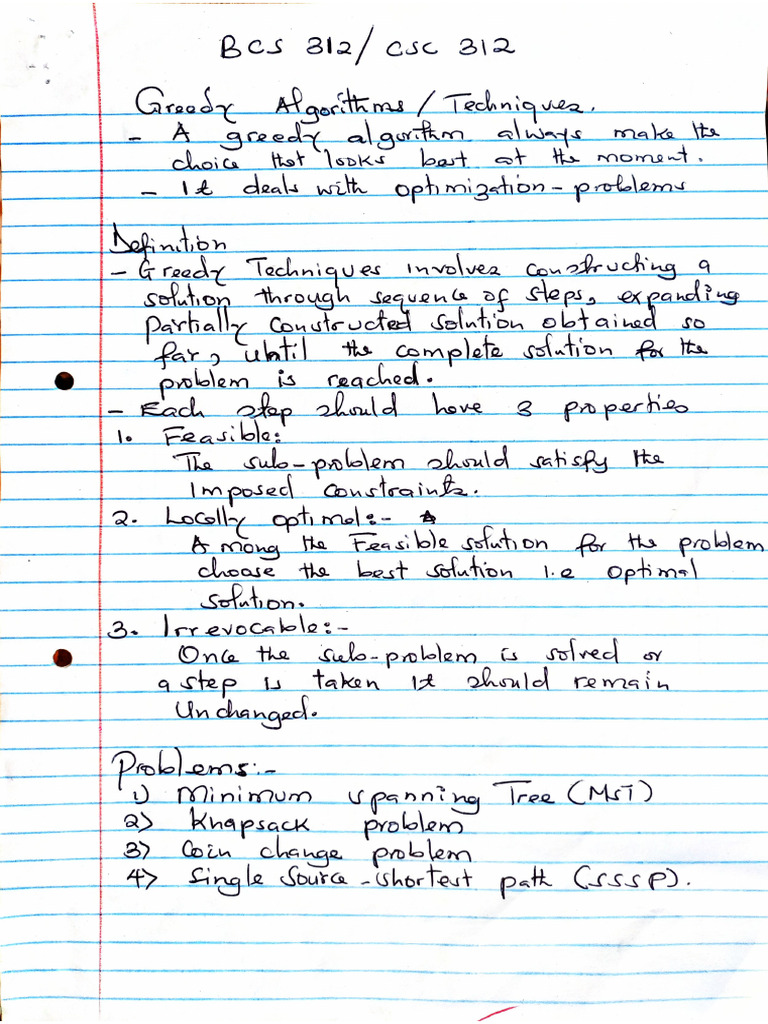 BCS 312/ CSC 312
Greedy Algorithms / Techniques.
- A greedy algorithm always make the
choice that looks best at the moment.
- It deals with optimization - problems
Definition
- Greedy Techniques involves constructing a
solution through sequence of steps, expanding
partially constructed solution obtained so
far, until the complete solution for the
problem is reached.
- Each step should have 3 properties
1. Feasible:
The sub-problem should satisfy the
Imposed constraints.
2. Locally optimal:-
Among the Feasible solution for the problem
choose the best solution i.e optimal
solution.
3. Irrevocable:-
Once the sub-problem is solved or
a step is taken it should remain
Unchanged.
Problems:-
1) Minimum spanning Tree (MST)
2) Knapsack problem
3) Coin change problem
4) Single Source - shortest path (SSSP).